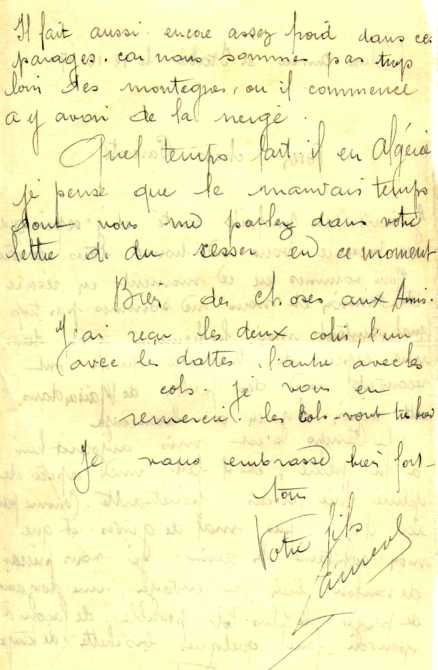 Il fait aussi encore assez froid dans ces
parages. car nous sommes pas trop
loin des montagnes, ou il commence
a y avoir de la neige.
Quel temps fait il en Algérie
je pense que le mauvais temps
dont vous me parlez dans votre
lettre a du cesser en ce moment
Bien des choses aux Amis.
J'ai reçu les deux colis, l'un
avec les dattes, l'autre avec les
cols. je vous en
remerci. les cols vont tres bien
Je vous embrasse bien fort
tous
Votre fils